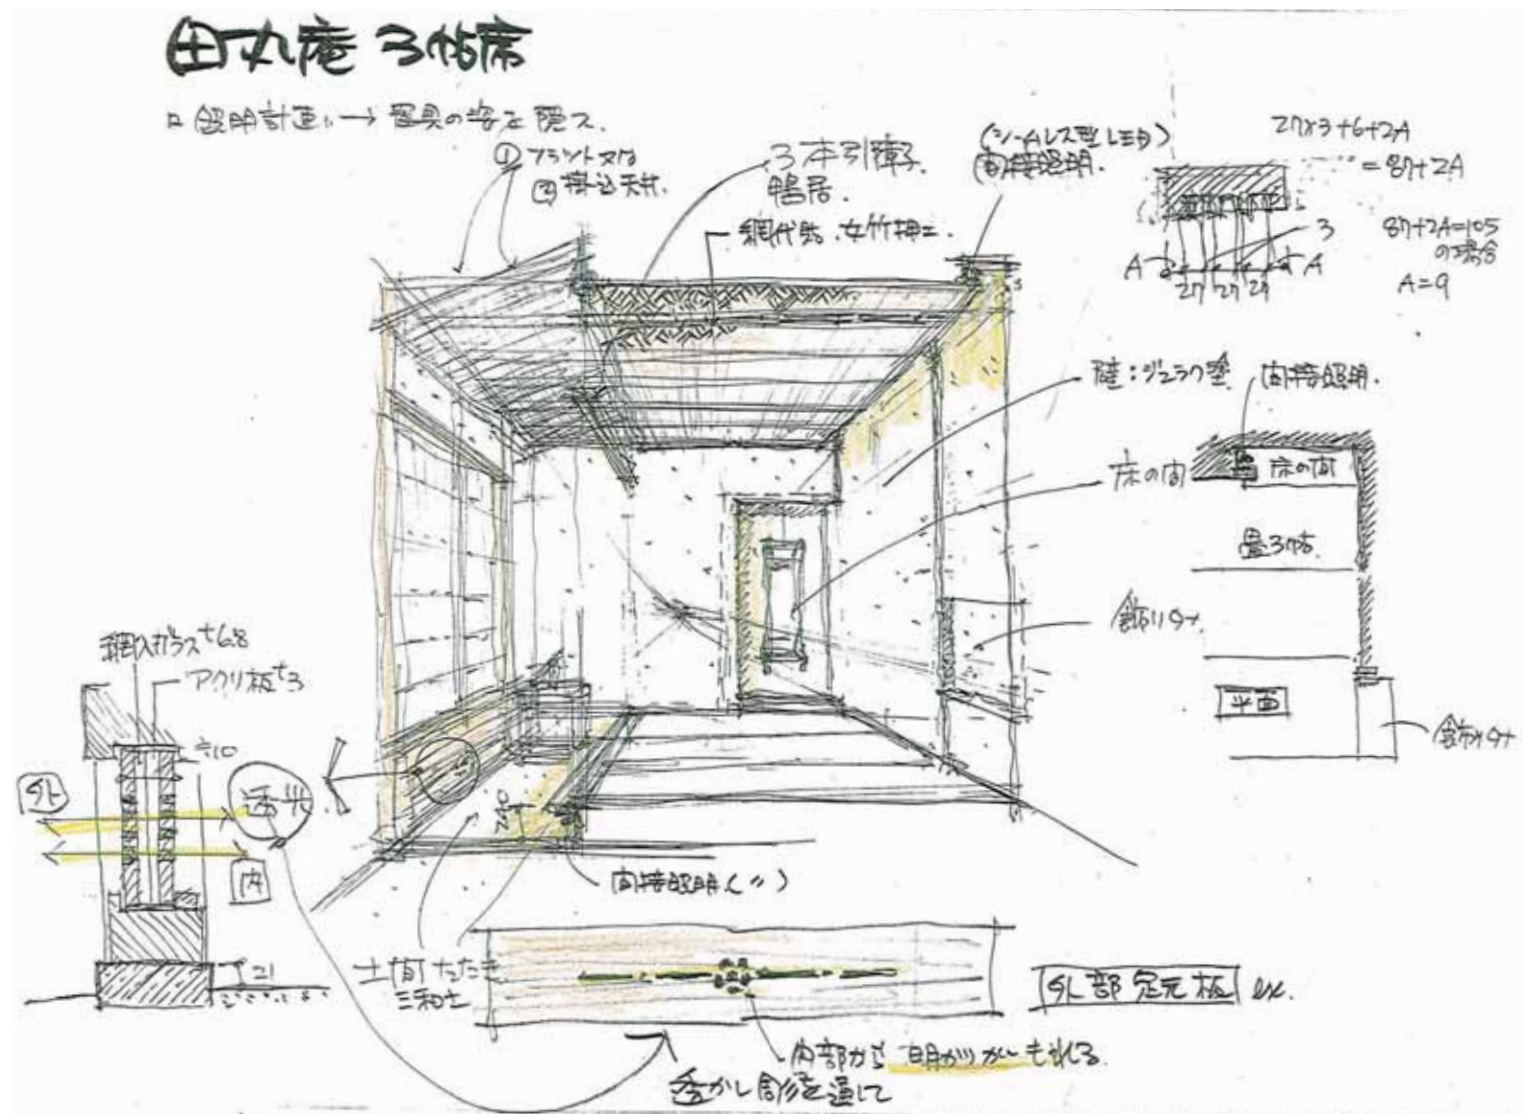 田丸庵 3帖席
□ 照明計画 → 器具の姿を隠ス.
① フラット又は
② 掛込天井.
3本引障子
鴨居.
網代貼.女竹押エ.
(シームレス型LED)
間接照明.
27×3+6+2A
= 87+2A
87+2A=105
の場合
A=9
3
A
A
27 27 27
壁:ジュラク塗
間接照明.
床の間
床の間
畳3帖
飾り棚
平面
飾り棚
網入ガラス t6.8
アクリ板 t3
≒10
外
透光
内
21
240
間接照明(〃)
土間たたき
三和土
外部 ex.
内部から 明かりがもれる
透かし彫を通して